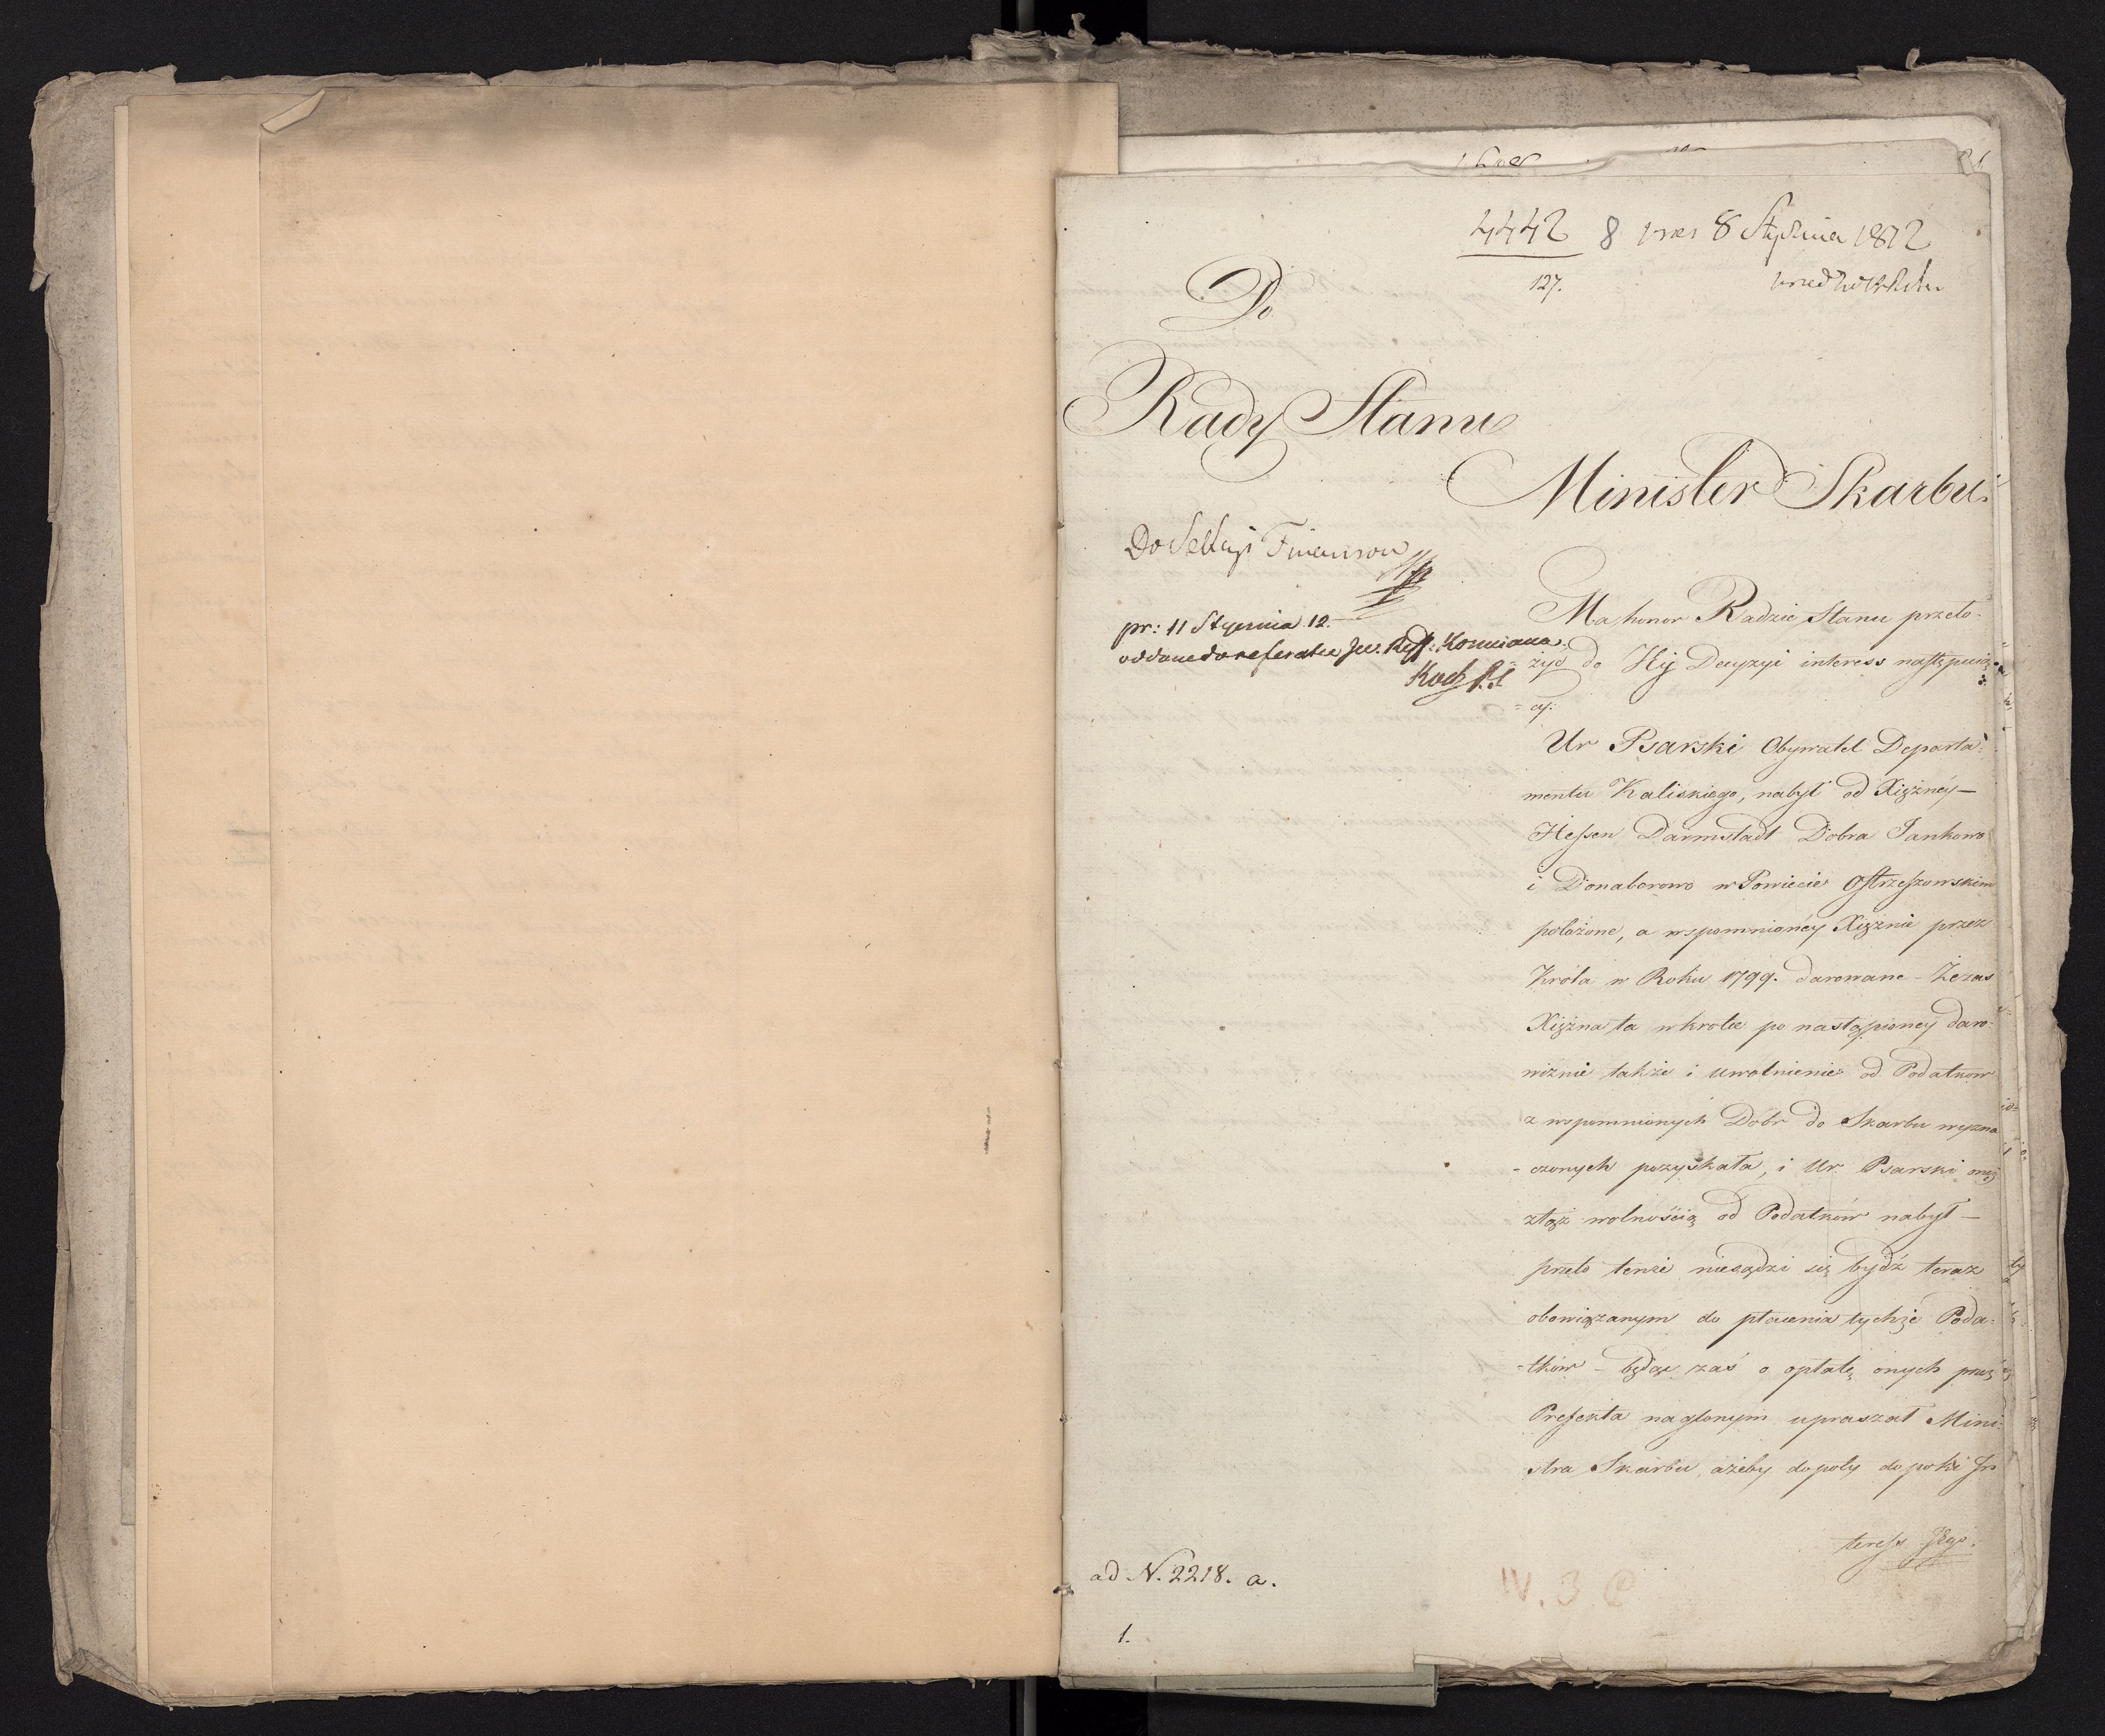 4442 8 pres 8 Stycznia 1812
127.
Do
Rady Stanu
Minister Skarbu.
Do Sekcyi Finansow
pr: 11 Stycznia 12.
oddane do referatu Jw. Reff. Kozmiana.
Koch
Ma honor Radzie Stanu przeło-
- żyć do Jéj Decyzyi interess następuią
= cy:
Ur Psarski Obywatel Departa=
mentu Kaliskiego, nabył od Xiężnéy —
Hessen Darmstadt Dobra Jankowo
i Donaborowo w Powiecie Ostrzeszowskim
położone, a wspomnionéy Xiężnie przez
Króla w Roku 1799. darowane - Że zaś
Xiężna ta wkrotce po nastąpioney daro-
wiznie także i uwolnienie od Podatkow
z wspomnionych Dóbr do Skarbu wyzna
- czonych pozyskała, i Ur. Psarski oneż
ztąż wolnością od Podatków nabył —
przeto tenże niesądzi się bydź teraz
obowiązanym do płacenia tychże Poda=
-tków - będąc zaś o opłatę onych przez
Prefekta naglonym upraszał Mini-
stra Skarbu, ażeby dopoty dopoki Jn
teress Jego.
ad N. 2218. a.
IV. 3.
1.